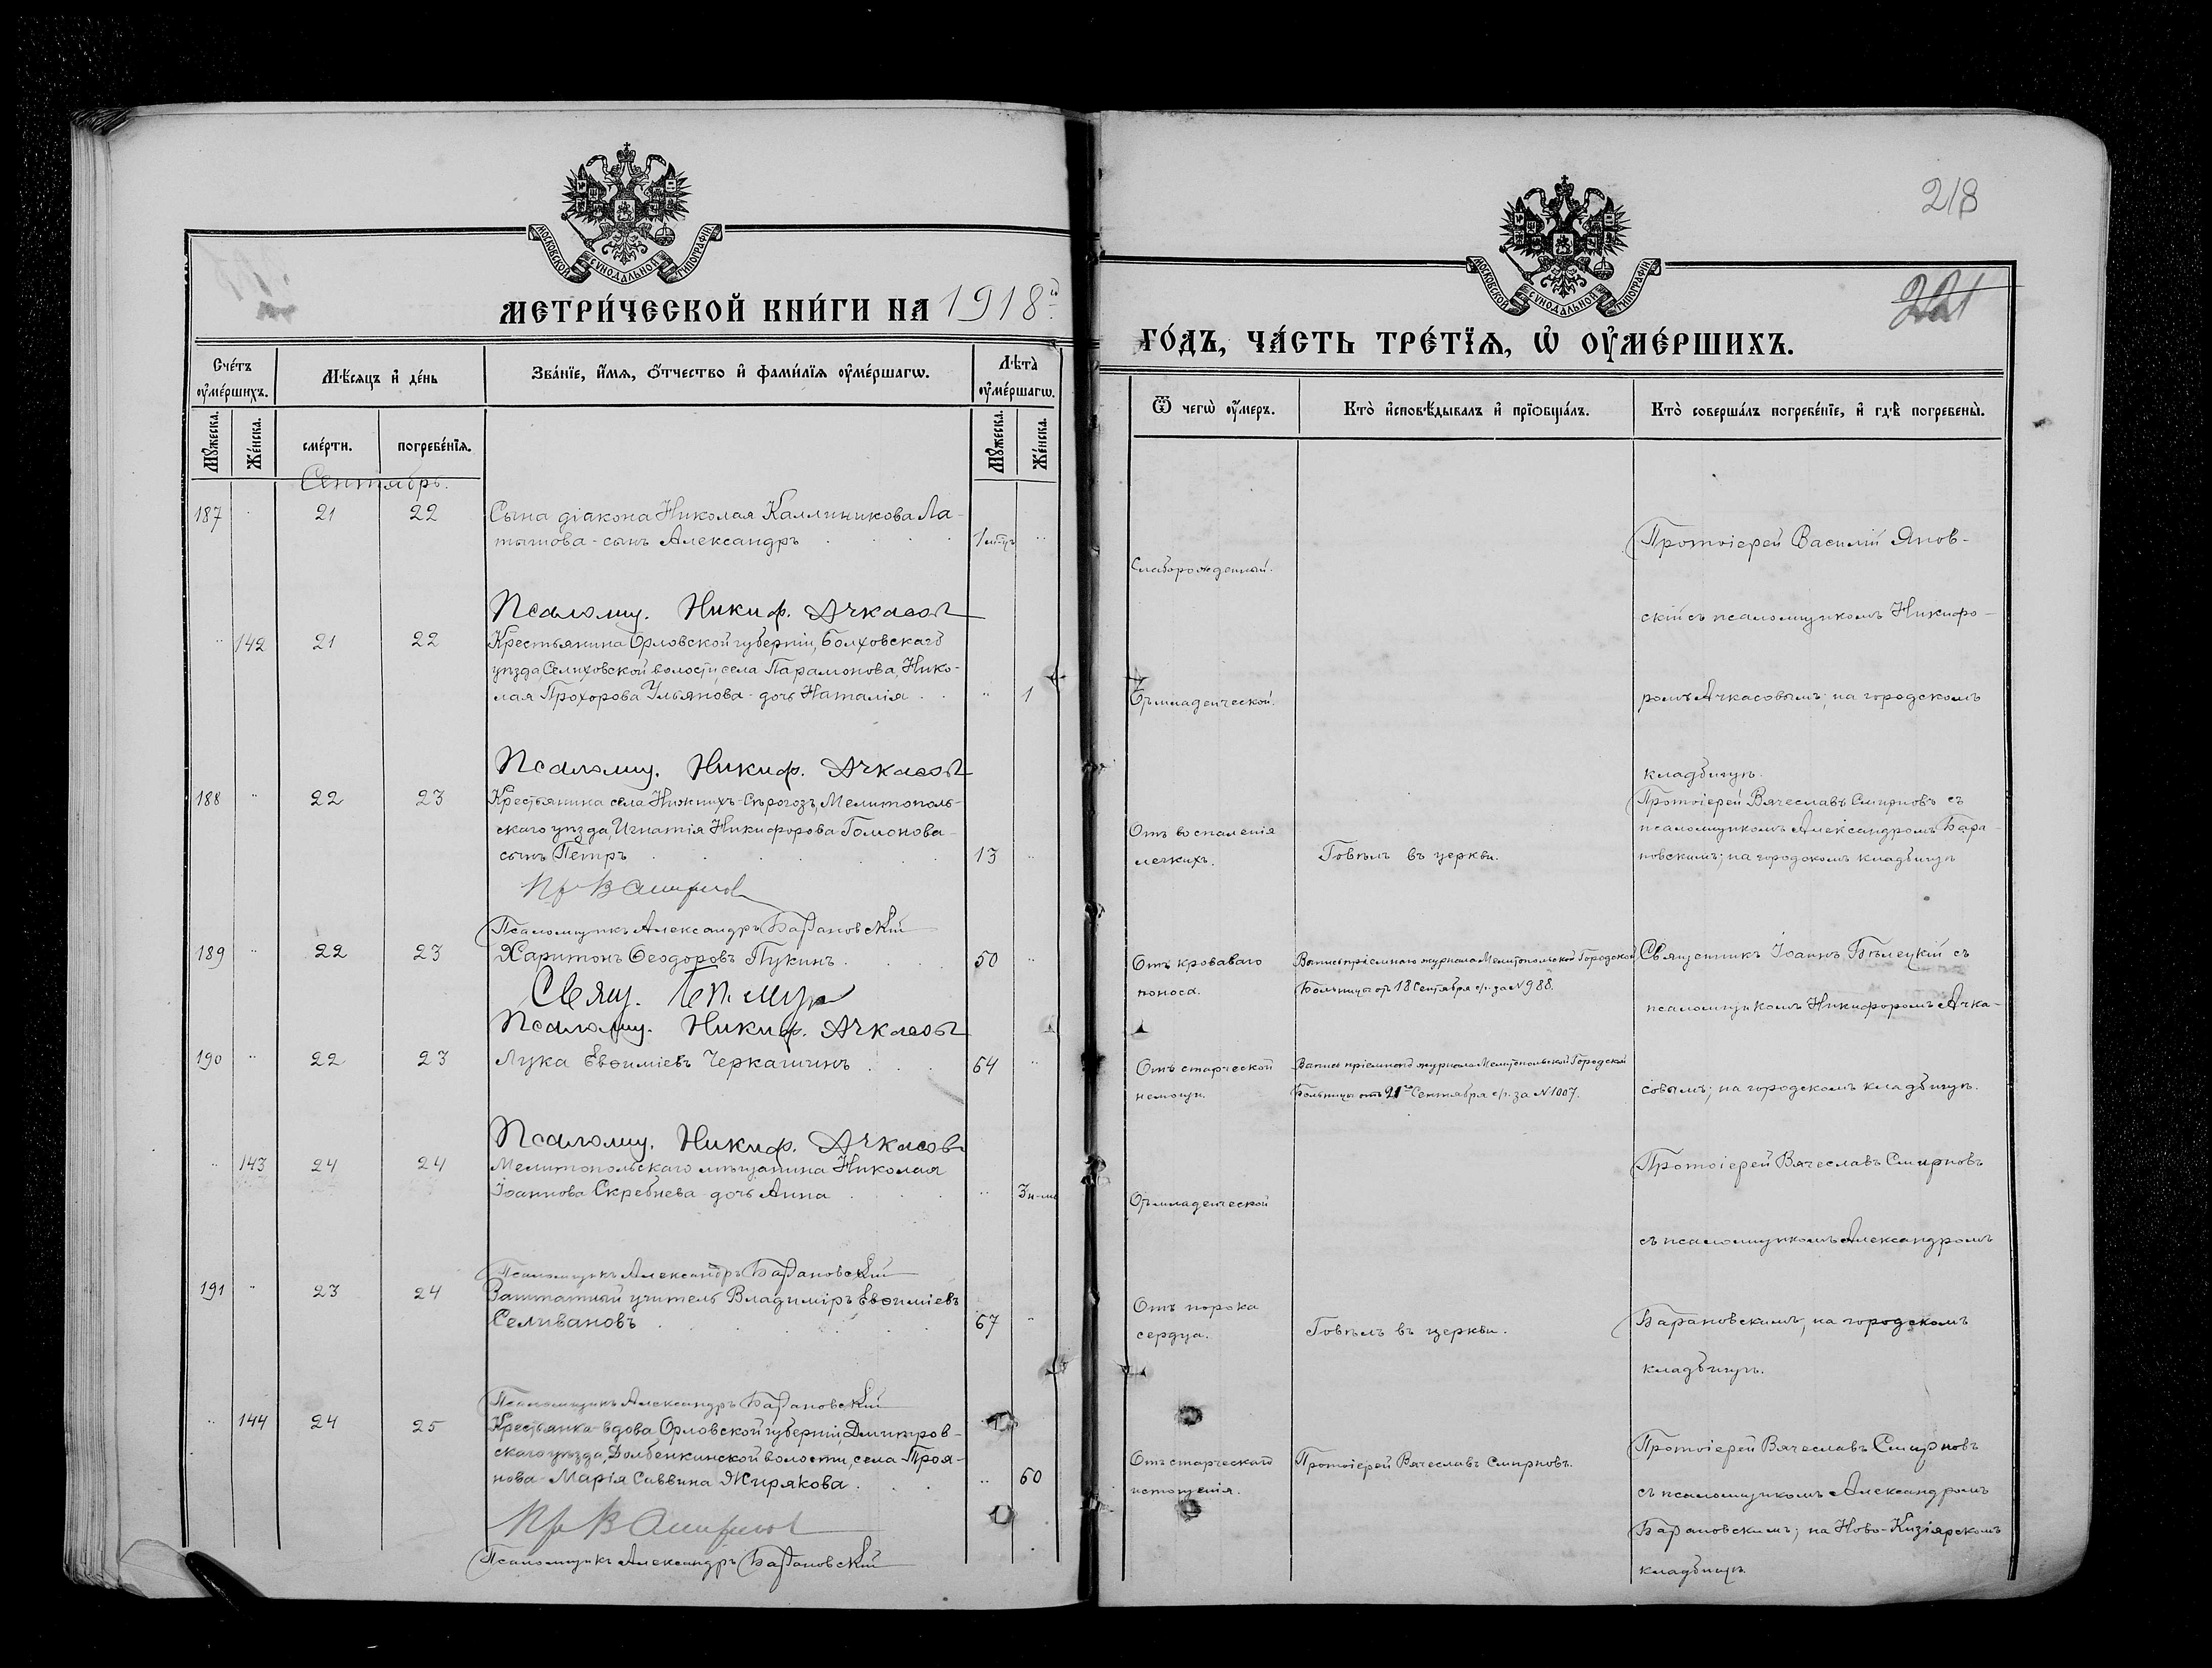 МОСКОВСКОЙ СѴНОДАЛЬНОЙ ТИПОГРАФІИ
МЕТРИ́ЧЕСКОЙ КНИ́ГИ НА 1918й
Сче́тъ оу҆ме́ршихъ.
Мѣ́сяцъ и҆ де́нь
Зва́нїе, и҆́мѧ, ѻ҆́тчество и҆ фами́лїѧ оу҆ме́ршагѡ.
Лѣ́та оу҆ме́ршагѡ.
Мꙋ́жеска.
Же́нска.
сме́рти.
погребе́нїѧ.
Мꙋ́жеска.
Же́нска.
Сентябрь.
187 21 22 Сына діакона Николая Каллиникова Ла-
тышова - сынъ Александръ 1 м-цъ
Псаломщ. Никиф. Ачкасов
142 21 22 Крестьянина Орловской губерніи, Болховскаго
уѣзда Селиховской волости, села Парамонова, Нико-
лая Прохорова Ульянова - дочь Наталія 1
Псаломщ. Никиф. Ачкасов
188 22 23 Крестьянина села Нижнихъ-Сѣрогозъ, Мелитополь-
скаго уѣзда Игнатія Никифорова Гомонова -
сынъ Петръ 13
Пр В Смирнов
Псаломщикъ Александръ Барановскій
189 22 23 Харитонъ Ѳеодоровъ Пукинъ 50
Свящ.
Псаломщ. Никиф. Ачкасов
190 22 23 Лука Евѳиміевъ Черкашинъ 64
Псаломщ. Никиф. Ачкасовъ
143 24 24 Мелитопольскаго мѣщанина Николая
Іоаннова Скребнева - дочь Анна
Псаломщикъ Александръ Барановскій
191 23 24 Заштатный учитель Владиміръ Евѳиміевъ
Селивановъ 67
Псаломщикъ Александръ Барановскій
144 24 25 Крестьянка - вдова Орловской губерніи, Дмитров-
скаго уѣзда, Долбенкинской волости, села Троя-
нова - Марія Саввина Жирякова 60
Пр В Смирнов
Псаломщикъ Александръ Барановскій
218
221
МОСКОВСКОЙ СѴНОДАЛЬНОЙ ТИПОГРАФІИ
ГО́ДЪ, ЧА́СТЬ ТРЕ́ТЇѦ, Ѡ҆ ОУ҆МЕ́РШИХЪ.
Ѿ чегѡ̀ оу҆́меръ.
Кто̀ и҆сповѣ́дывалъ и҆ прїѡбща́лъ.
Кто̀ соверша́лъ погребе́нїе, и҆ гдѣ̀ погребены̀.
Слаборожденный.
Протоіерей Василій Янов-
скій съ псаломщикомъ Никифо-
Отъ младенческой.
ромъ Ачкасовымъ; на городскомъ
кладбищѣ.
Отъ воспаленія
легкихъ.
Говѣлъ въ церкви.
Протоіерей Вячеславъ Смирновъ съ
псаломщикомъ Александромъ Бара-
новскимъ; на городскомъ кладбищѣ
Отъ кроваваго
поноса.
Запись пріемнаго журнала Мелитопольской Городской
Больницы отъ 18 Сентября с/г. за № 988.
Священникъ Іоаннъ Бѣлецкій съ
псаломщикомъ Никифоромъ Ачка-
Отъ старческой
немощи.
Запись пріемнаго журнала Мелитопольской Городской
Больницы отъ 21го Сентября с/г. за № 1007.
совымъ; на городскомъ кладбищѣ.
Отъ младенческой
Протоіерей Вячеславъ Смирновъ
съ псаломщикомъ Александромъ
Отъ порока
сердца.
Говѣлъ въ церкви.
Барановскимъ; на городскомъ
кладбищѣ.
Отъ старческаго
истощенія.
Протоіерей Вячеславъ Смирновъ.
Протоіерей Вячеславъ Смирновъ
съ псаломщикомъ Александромъ
Барановскимъ; на Ново-Кизіярскомъ
кладбищѣ.